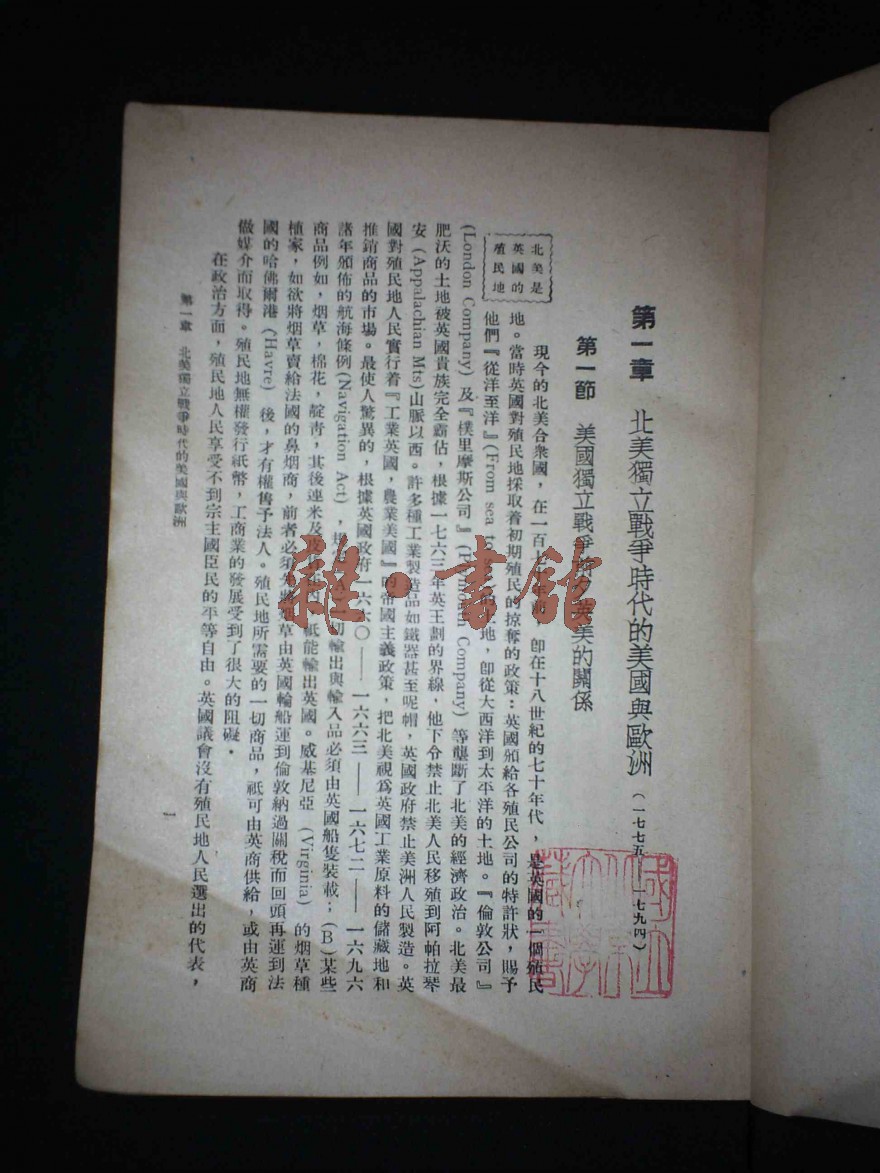 第一章 北美獨立戰爭時代的美國與歐洲(一七七五—一七九四)
第一節 美國獨立戰爭前夕英美的關係
北美是
英國的
殖民地
現今的北美合衆國,在一百七十年前,卽在十八世紀的七十年代,是英國的一個殖民
地。當時英國對殖民地採取着初期殖民的掠奪的政策:英國頒給各殖民公司的特許狀,賜予
他們『從洋至洋』(From sea to sea)的土地,卽從大西洋到太平洋的土地。『倫敦公司』
(London Company)及『樸里摩斯公司』(Plymouth Company)等壟斷了北美的經濟政治。北美最
肥沃的土地被英國貴族完全霸佔,根據一七六三年英王劃的界線,他下令禁止北美人民移殖到阿帕拉琴
安(Appalachian Mts)山脈以西。許多種工業製造品如鐵器甚至呢帽,英國政府禁止美洲人民製造。英
國對殖民地人民實行着『工業英國,農業美國』的帝國主義政策,把北美視爲英國工業原料的儲藏地和
推銷商品的市場。最使人驚異的,根據英國政府一六六〇——一六六三——一六七二——一六九六
諸年頒佈的航海條例(Navigation Act),(A)一切輸出與輸入品必須由英國船隻裝載;(B)某些
商品例如,烟草,棉花,靛青,其後連米及皮貨在內,祇能輸出英國。威基尼亞(Virginia)的烟草種
植家,如欲將烟草賣給法國的鼻烟商,前者必須先將烟草由英國輪船運到倫敦納過關稅而回頭再運到法
國的哈佛爾港(Havre)後,才有權售予法人。殖民地所需要的一切商品,祇可由英商供給,或由英商
做媒介而取得。殖民地無權發行紙幣,工商業的發展受到了很大的阻礙。
在政治方面,殖民地人民享受不到宗主國臣民的平等自由。英國議會沒有殖民地人民選出的代表,
第一章 北美獨立戰爭時代的美國與歐洲
一
雜·書館